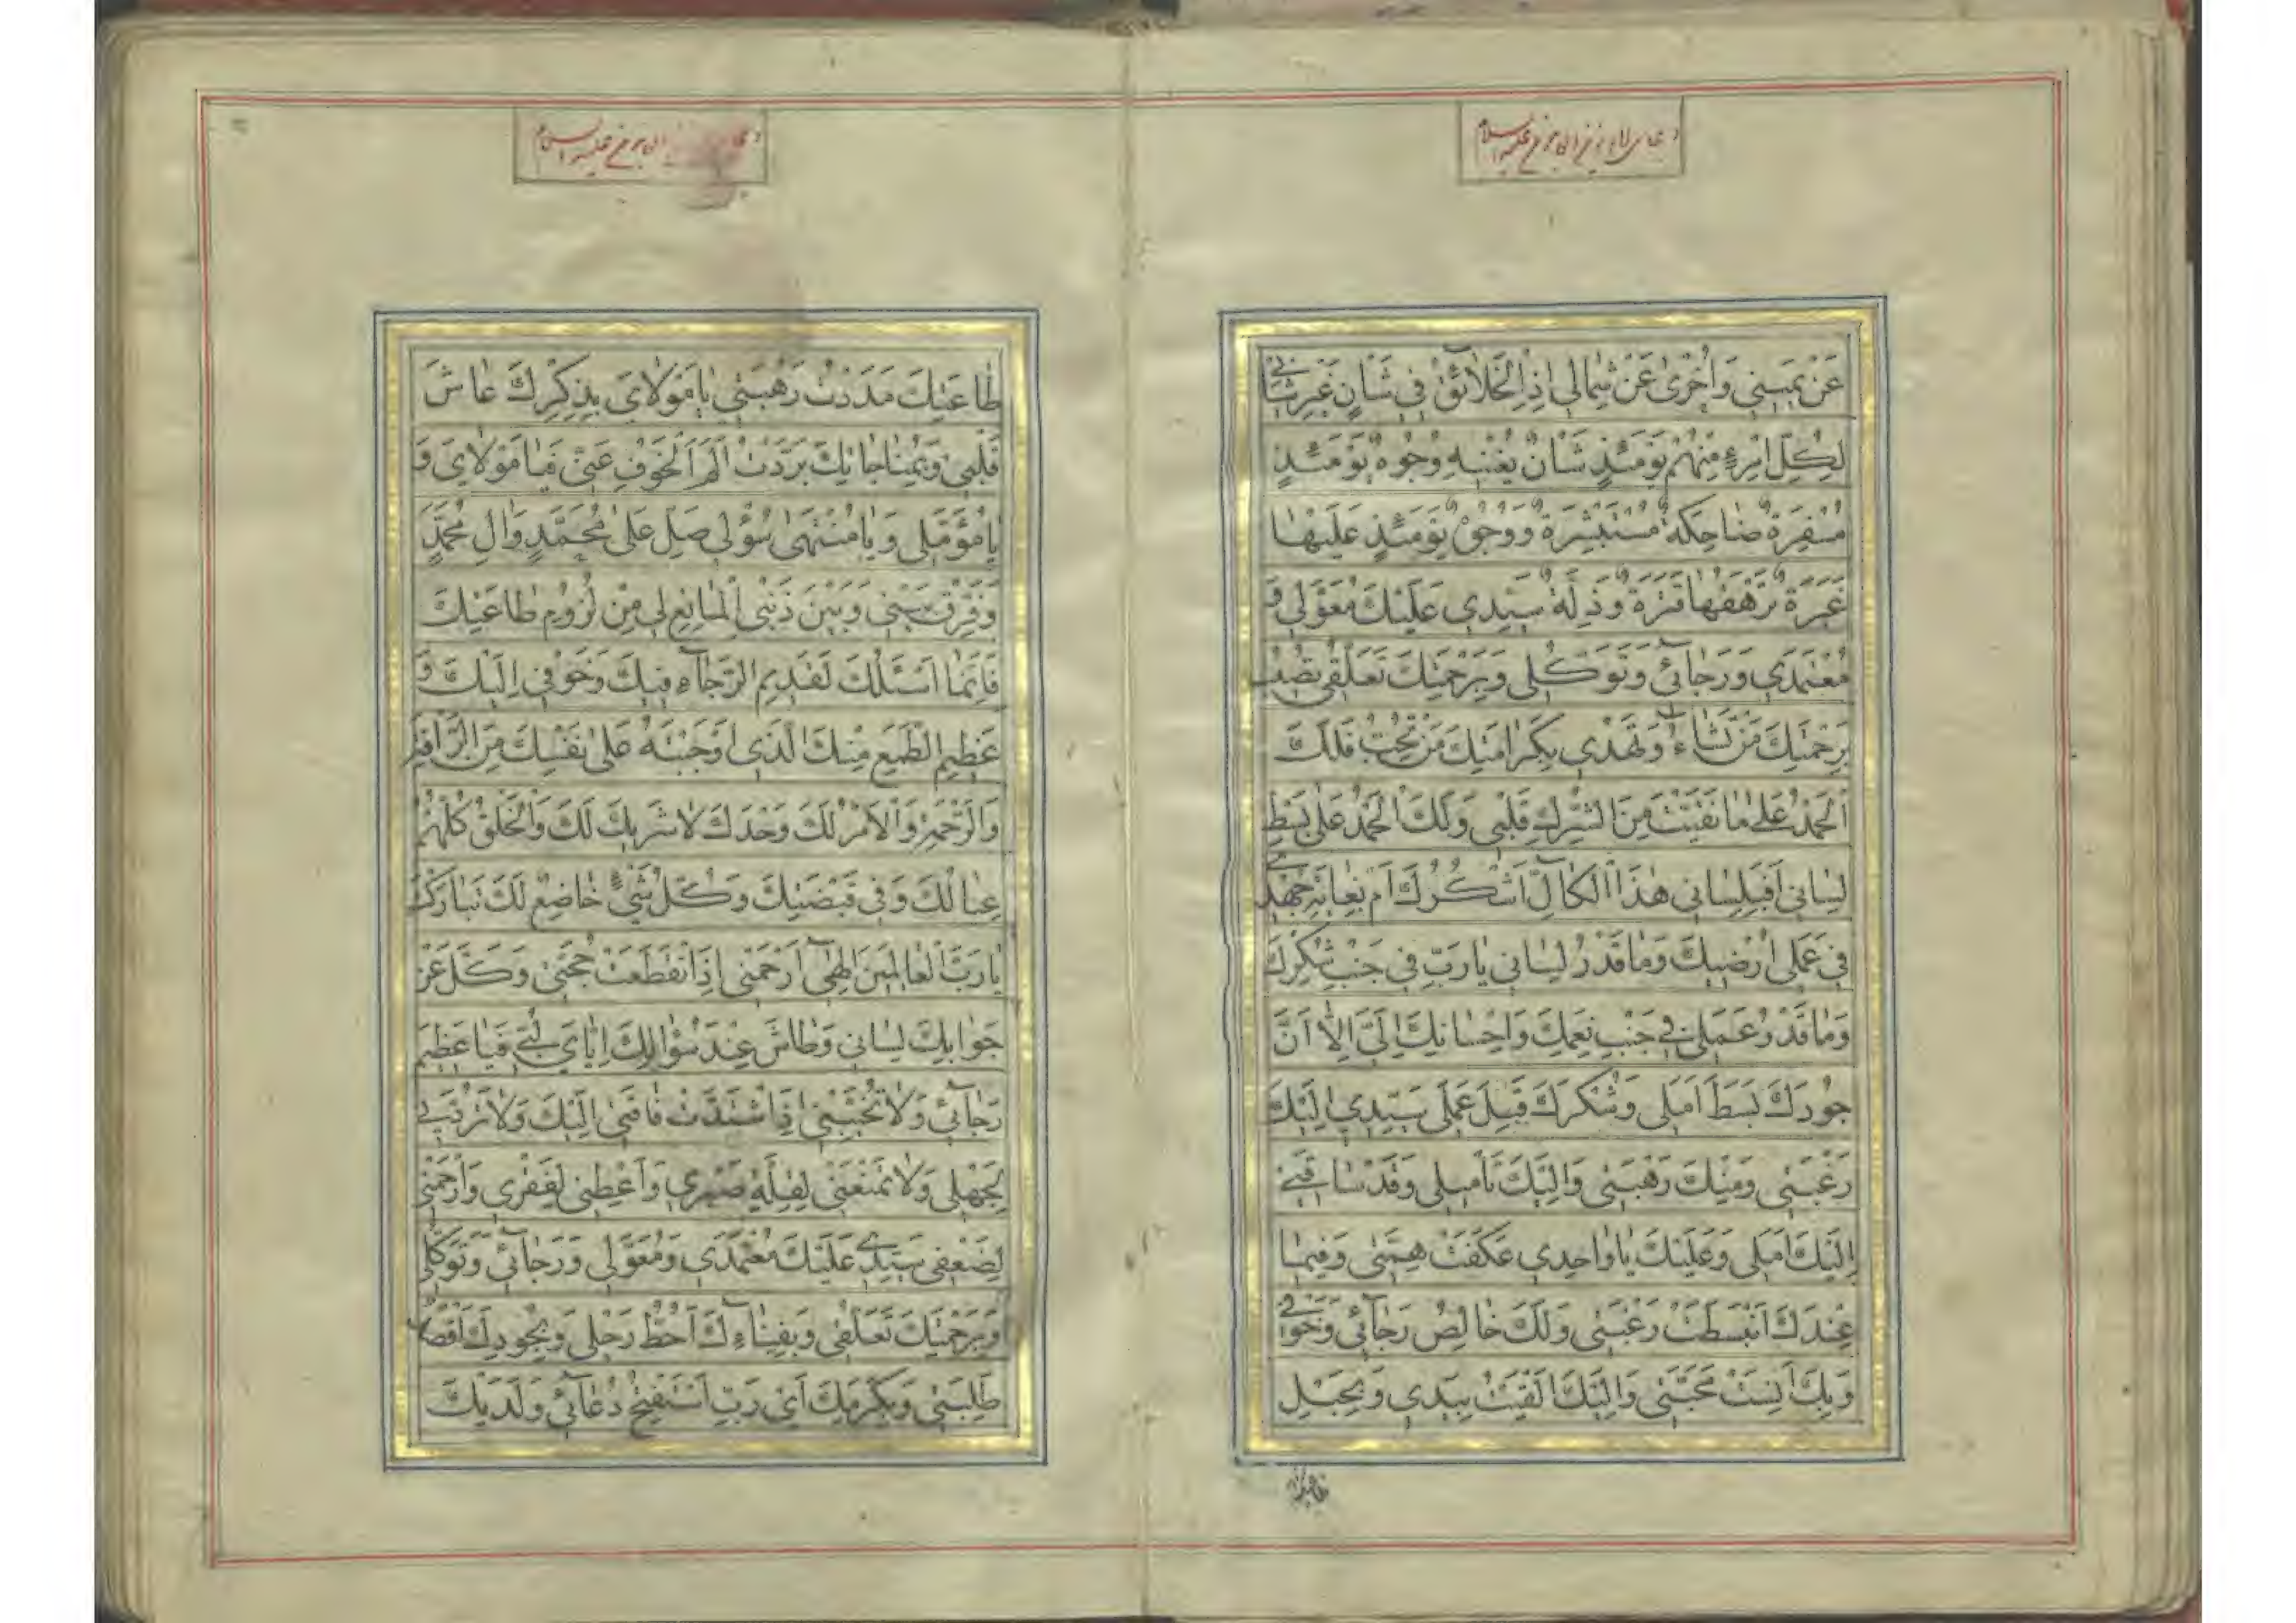 عَنْ يَمِينِي وَاُخْرىٰ عَنْ شِمٰالِي اِذِ الْخَلاٰئِقُ فِي شَاْنٍ غَيْرِ شَاْنِي
لِكُلِّ امْرِءٍ مِنْهُمْ يَوْمَئِذٍ شَاْنٌ يُغْنِيهِ وُجُوهٌ يَوْمَئِذٍ
مُسْفِرَةٌ ضٰاحِكَةٌ مُسْتَبْشِرَةٌ وَوُجُوهٌ يَوْمَئِذٍ عَلَيْهٰا
غَبَرَةٌ تَرْهَقُهٰا قَتَرَةٌ وَذِلَّةٌ سَيِّدِي عَلَيْكَ مُعَوَّلِي وَ
مُعْتَمَدِي وَرَجٰآئِي وَتَوَكُّلِي وَبِرَحْمَتِكَ تَعَلُّقِي تُصِيبُ
بِرَحْمَتِكَ مَنْ تَشٰآءُ وَتَهْدِي بِكَرٰامَتِكَ مَنْ تُحِبُّ فَلَكَ
الْحَمْدُ عَلىٰ مٰا نَقَّيْتَ مِنَ الشِّرْكِ قَلْبِي وَلَكَ الْحَمْدُ عَلىٰ بَسْطِ
لِسٰانِي اَفَبِلِسٰانِي هٰذَا الْكٰالِّ اَشْكُرُكَ اَمْ بِغٰايَةِ جُهْدِي
فِي عَمَلِي اُرْضِيكَ وَمٰا قَدْرُ لِسٰانِي يٰا رَبِّ فِي جَنْبِ شُكْرِكَ
وَمٰا قَدْرُ عَمَلِي فِي جَنْبِ نِعَمِكَ وَاِحْسٰانِكَ اِلَيَّ اِلّٰا اَنَّ
جُودَكَ بَسَطَ اَمَلِي وَشُكْرَكَ قَبِلَ عَمَلِي سَيِّدِي اِلَيْكَ
رَغْبَتِي وَمِنْكَ رَهْبَتِي وَاِلَيْكَ تَاْمِيلِي وَقَدْ سٰاقَنِي
اِلَيْكَ اَمَلِي وَعَلَيْكَ يٰا وٰاحِدِي عَكَفَتْ هِمَّتِي وَفِيمٰا
عِنْدَكَ انْبَسَطَتْ رَغْبَتِي وَلَكَ خٰالِصُ رَجٰآئِي وَخَوْفِي
وَبِكَ اَنِسَتْ مَحَبَّتِي وَاِلَيْكَ اَلْقَيْتُ بِيَدِي وَبِحَبْلِ
طٰاعَتِكَ مَدَدْتُ رَهْبَتِي يٰا مَوْلٰايَ بِذِكْرِكَ عٰاشَ
قَلْبِي وَبِمُنٰاجٰاتِكَ بَرَّدْتُ اَلَمَ الْخَوْفِ عَنِّي فَيٰا مَوْلٰايَ وَ
يٰا مُؤَمَّلِي وَيٰا مُنْتَهىٰ سُؤْلِي صَلِّ عَلىٰ مُحَمَّدٍ وَاٰلِ مُحَمَّدٍ
وَفَرِّقْ بَيْنِي وَبَيْنَ ذَنْبِيَ الْمٰانِعِ لِي مِنْ لُزُومِ طٰاعَتِكَ
فَاِنَّمٰا اَسْئَلُكَ لِقَدِيمِ الرَّجٰآءِ فِيكَ وَخَوْفِي اِلَيْكَ وَ
عَظِيمِ الطَّمَعِ مِنْكَ الَّذِي اَوْجَبْتَهُ عَلىٰ نَفْسِكَ مِنَ الرَّاْفَةِ
وَالرَّحْمَةِ وَالْاَمْرُ لَكَ وَحْدَكَ لاٰ شَرِيكَ لَكَ وَالْخَلْقُ كُلُّهُمْ
عِيٰالُكَ وَفِي قَبْضَتِكَ وَكُلُّ شَيْءٍ خٰاضِعٌ لَكَ تَبٰارَكْتَ
يٰا رَبَّ الْعٰالَمِينَ اِلٰهِي اِرْحَمْنِي اِذَا انْقَطَعَتْ حُجَّتِي وَكَلَّ عَنْ
جَوٰابِكَ لِسٰانِي وَطٰاشَ عِنْدَ سُؤٰالِكَ اِيّٰايَ لُبِّي فَيٰا عَظِيمَ
رَجٰآئِي وَلاٰ تُخَيِّبْنِي اِذَا اشْتَدَّتْ فٰاقَتِي اِلَيْكَ وَلاٰ تَرُدَّنِي
لِجَهْلِي وَلاٰ تَمْنَعْنِي لِقِلَّةِ صَبْرِي وَاَعْطِنِي لِفَقْرِي وَارْحَمْنِي
لِضَعْفِي سَيِّدِي عَلَيْكَ مُعْتَمَدِي وَمُعَوَّلِي وَرَجٰآئِي وَتَوَكُّلِي
وَبِرَحْمَتِكَ تَعَلُّقِي وَبِفِنٰاءِكَ اَحُطُّ رَحْلِي وَبِجُودِكَ اَقْصِدُ
طَلِبَتِي وَبِكَرَمِكَ اَيْ رَبِّ اَسْتَفْتِحُ دُعٰآئِي وَلَدَيْكَ